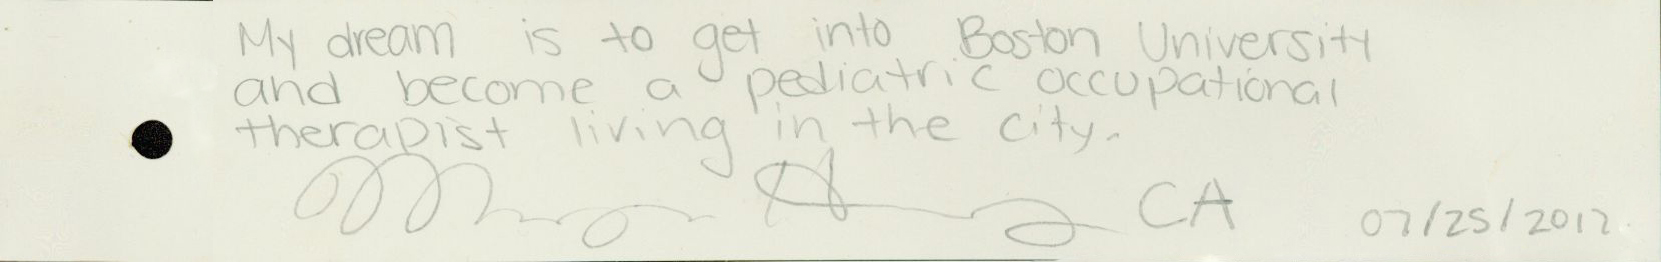 My dream is to get into Boston University
and become a pediatric occupational
therapist living in the city.
CA 07/25/2017